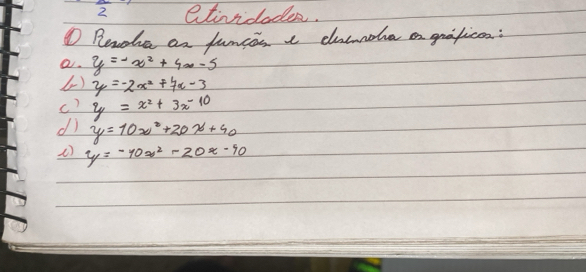 2
Atividades.
1) Resolva as funções e desenvolva os gráficos:
a. y = -x² + 4x - 5
b) y = -2x² + 4x - 3
c) y = x² + 3x - 10
d) y = 10x² + 20x + 40
e) y = -40x² - 20x - 40